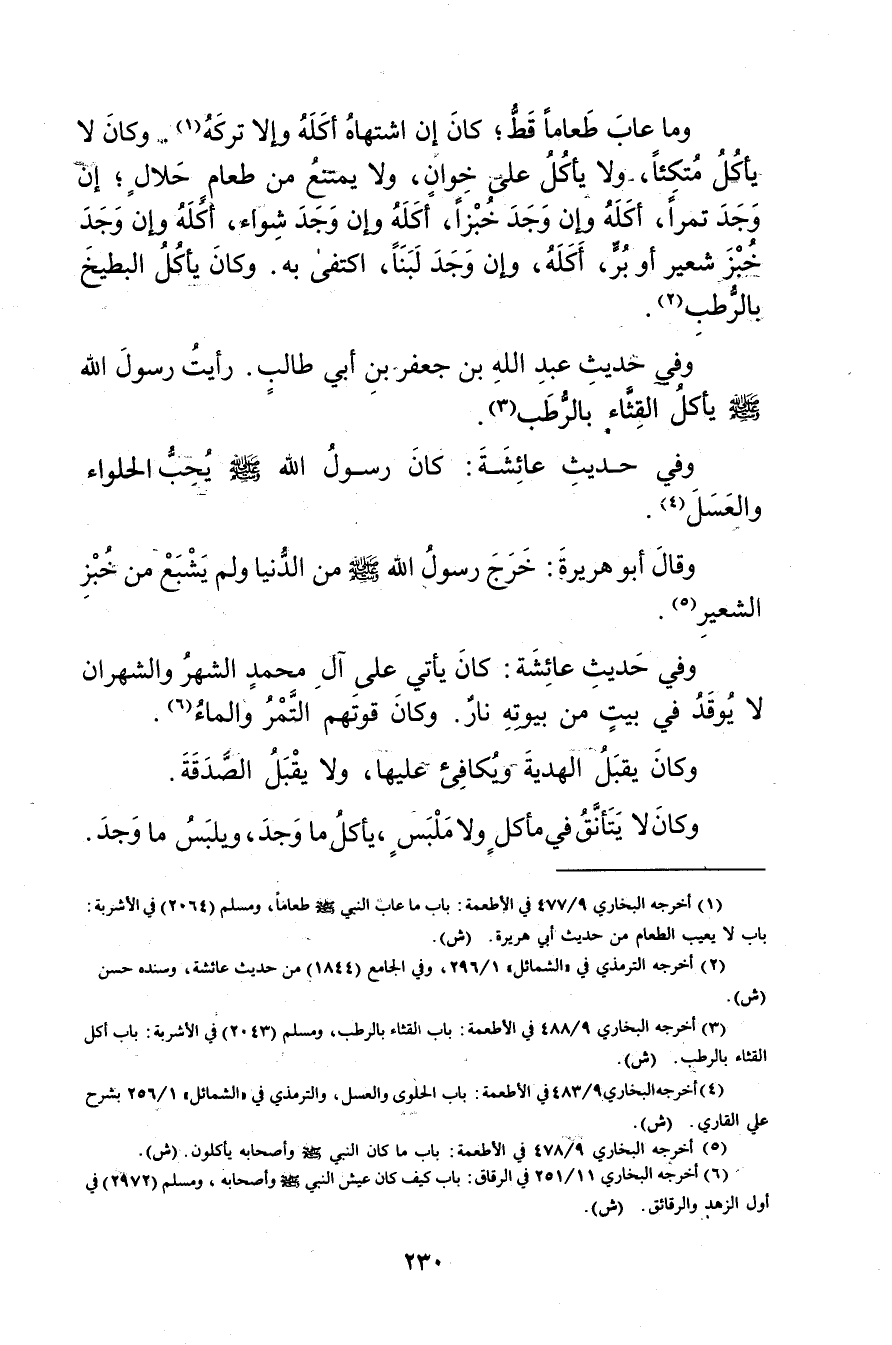 وما عابَ طَعاماً قَطُّ؛ كانَ إن اشتهاهُ أكَلَهُ وإلا تركَهُ(١). وكانَ لا
يأكُلُ مُتكِئاً، ولا يأكُلُ على خِوانٍ، ولا يمتنعُ من طعامٍ حَلالٍ؛ إنْ
وَجَدَ تمراً، أكَلَهُ وإن وَجَدَ خُبْزاً، أكَلَهُ وإن وَجَدَ شِواء، أكَلَهُ وإن وَجَدَ
خُبْزَ شعير أو بُرٍّ، أَكَلَهُ، وإن وَجَدَ لَبَنَاً، اكتفىٰ به. وكانَ يأكُلُ البطيخَ
بالرُّطبِ(٢).
وفي حَديثِ عبدِ اللهِ بن جعفر بنِ أبي طالبٍ. رأيتُ رسولَ الله
ﷺ يأكلُ القِثَّاء بالرُّطَب(٣).
وفي حـديثِ عائِشَـةَ: كانَ رسـولُ الله ﷺ يُحِبُّ الحلواء
والعَسَلَ(٤).
وقالَ أبو هريرةَ: خَرَجَ رسولُ الله ﷺ من الدُّنيا ولم يَشْبَعْ من خُبْزِ
الشعيرِ(٥).
وفي حَديثِ عائِشَة: كانَ يأتي على آلِ محمدٍ الشهرُ والشهران
لا يُوقَدُ في بيتٍ من بيوتِهِ نارٌ. وكانَ قوتَهم التَّمْرُ والماءُ(٦).
وكانَ يقبَلُ الهديةَ ويُكافِئ عليها، ولا يقْبَلُ الصَّدَقَةَ.
وكانَ لا يَتَأنَّقُ في مأكلٍ ولا مَلْبَسٍ، يأكلُ ما وَجدَ، ويلبَسُ ما وَجدَ.
(١) أخرجه البخاري ٤٧٧/٩ في الأطعمة: باب ما عاب النبي ﷺ طعاماً، ومسلم (٢٠٦٤) في الأشربة:
باب لا يعيب الطعام من حديث أبي هريرة. (ش).
(٢) أخرجه الترمذي في «الشمائل» ٢٩٦/١، وفي الجامع (١٨٤٤) من حديث عائشة، وسنده حسن
(ش).
(٣) أخرجه البخاري ٤٨٨/٩ في الأطعمة: باب القثاء بالرطب، ومسلم (٢٠٤٣) في الأشربة: باب أكل
القثاء بالرطب. (ش).
(٤) أخرجه البخاري ٤٨٣/٩ في الأطعمة: باب الحلوى والعسل، والترمذي في «الشمائل» ٢٥٦/١ بشرح
علي القاري. (ش).
(٥) أخرجه البخاري ٤٧٨/٩ في الأطعمة: باب ما كان النبي ﷺ وأصحابه يأكلون. (ش).
(٦) أخرجه البخاري ٢٥١/١١ في الرقاق: باب كيف كان عيش النبي ﷺ وأصحابه، ومسلم (٢٩٧٢) في
أول الزهد والرقائق. (ش).
٢٣٠